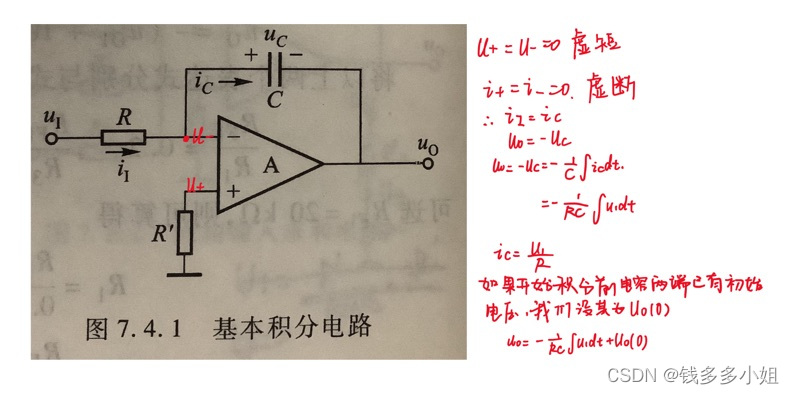 u_C
+ −
i_C
C
u_I
R
u-
−
A
u_O
i_I
u+
+
R'
图 7.4.1 基本积分电路
u+=u-=0 虚短
i+=i-=0. 虚断
∴ i_I=i_C
u_0=-u_C
u_0=-u_C=-1/C∫i_Cdt.
=-1/RC∫u_Idt
i_C=u_I/R
如果开始积分前电容两端已有初始
电压,我们设其为U_0(0)
u_0=-1/RC∫u_Idt+U_0(0)
CSDN @钱多多小姐